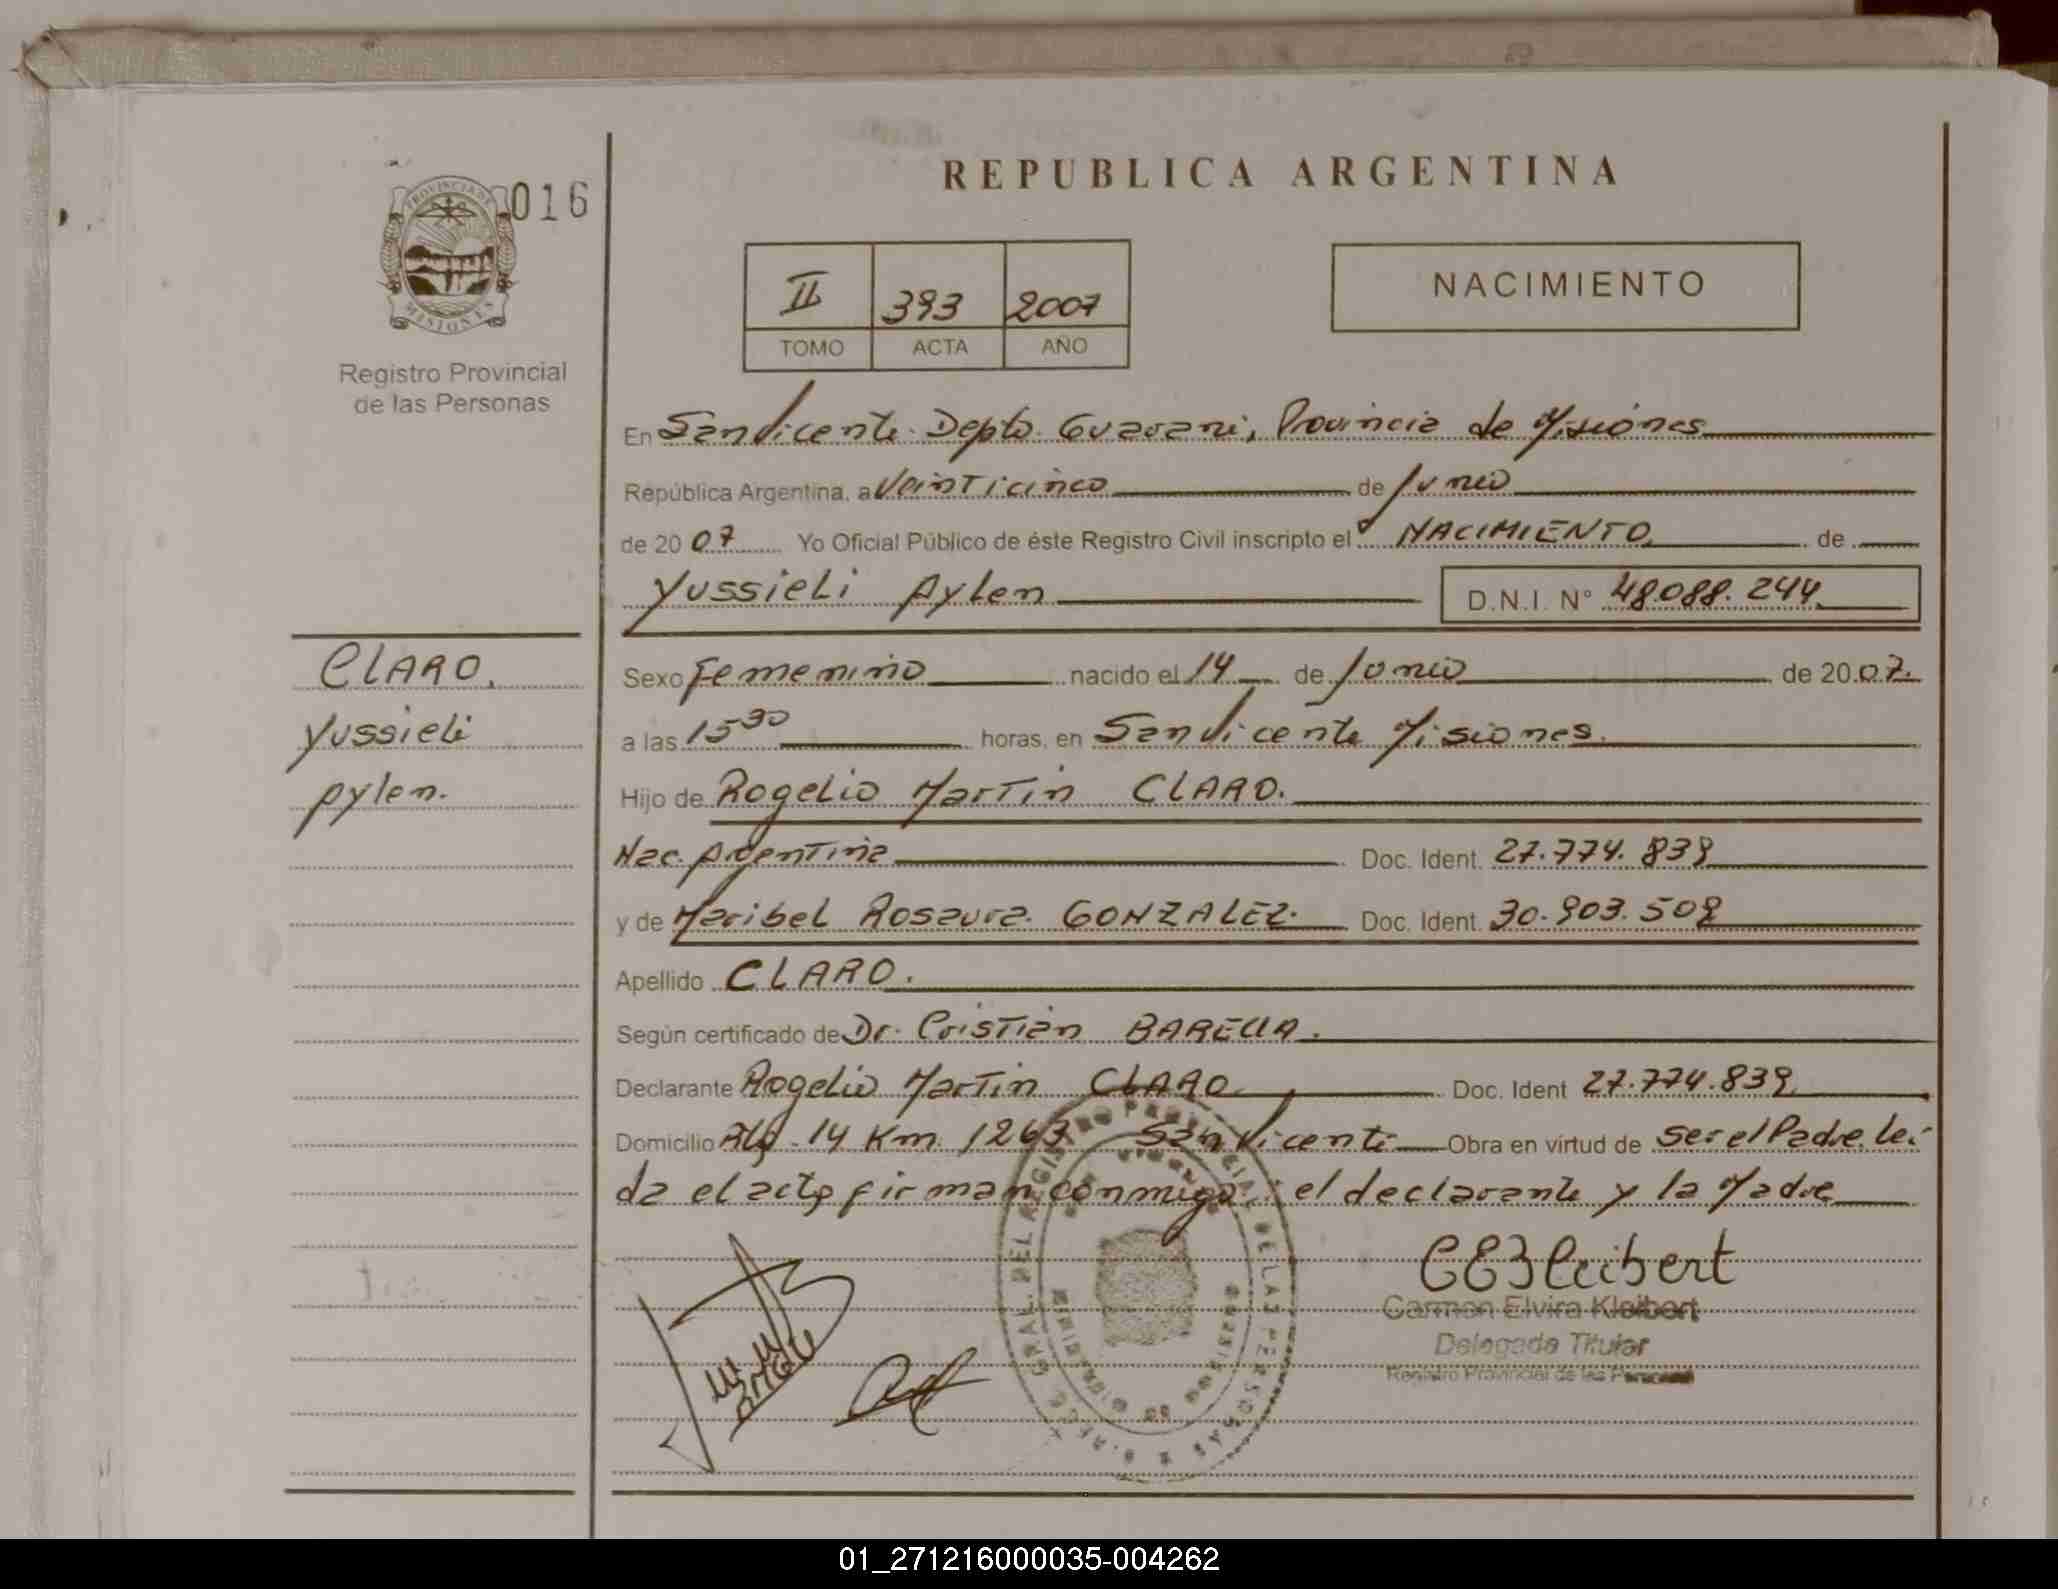 016
PROVINCIA DE
MISIONES
Registro Provincial
de las Personas
REPUBLICA ARGENTINA
II 393 2007
TOMO ACTA AÑO
NACIMIENTO
En San Vicente. Depto. Guarani, Provincia de Misiones
República Argentina, a Veinticinco de Junio
de 2007 Yo Oficial Público de éste Registro Civil inscripto el NACIMIENTO de
Yussieli Aylen D.N.I. N° 48.088.244
CLARO,
Yussieli
Aylen.
Sexo Femenino nacido el 14 de Junio de 2007.
a las 15 30 horas, en San Vicente Misiones.
Hijo de Rogelio Martin CLARO.
Nac. Argentina Doc. Ident. 27.774.839
y de Maribel Rosaura GONZALEZ. Doc. Ident. 30.903.509
Apellido CLARO.
Según certificado de Dr. Cristian BARELLA.
Declarante Rogelio Martin CLARO Doc. Ident 27.774.839
Domicilio 14 Km. 1263 San Vicente Obra en virtud de ser el Padre. Lei
da el acta firman conmigo: el declarante y la Madre
GRAL. DEL REGISTRO PROVINCIAL DE LAS PERSONAS
CEKleibert
Carmen Elvira Kleibert
Delegada Titular
Registro Provincial de las Personas
01_271216000035-004262